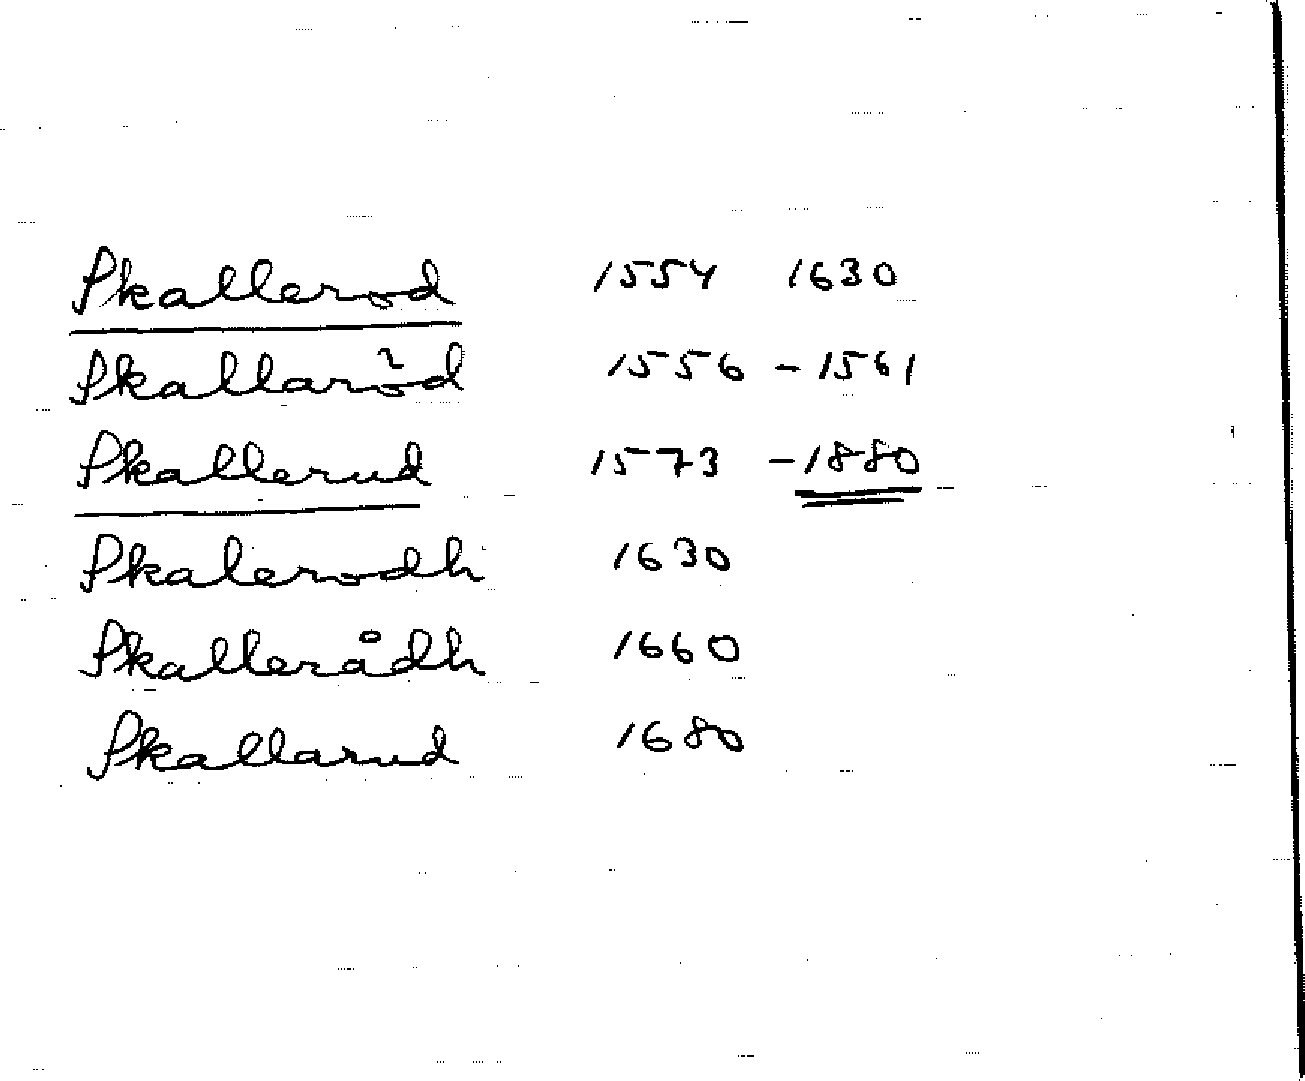 Skallerod 1554 1630
Skallaröd 1556 - 1561
Skallerud 1573 - 1880
Skalerodh 1630
Skallerådh 1660
Skallarud 1680